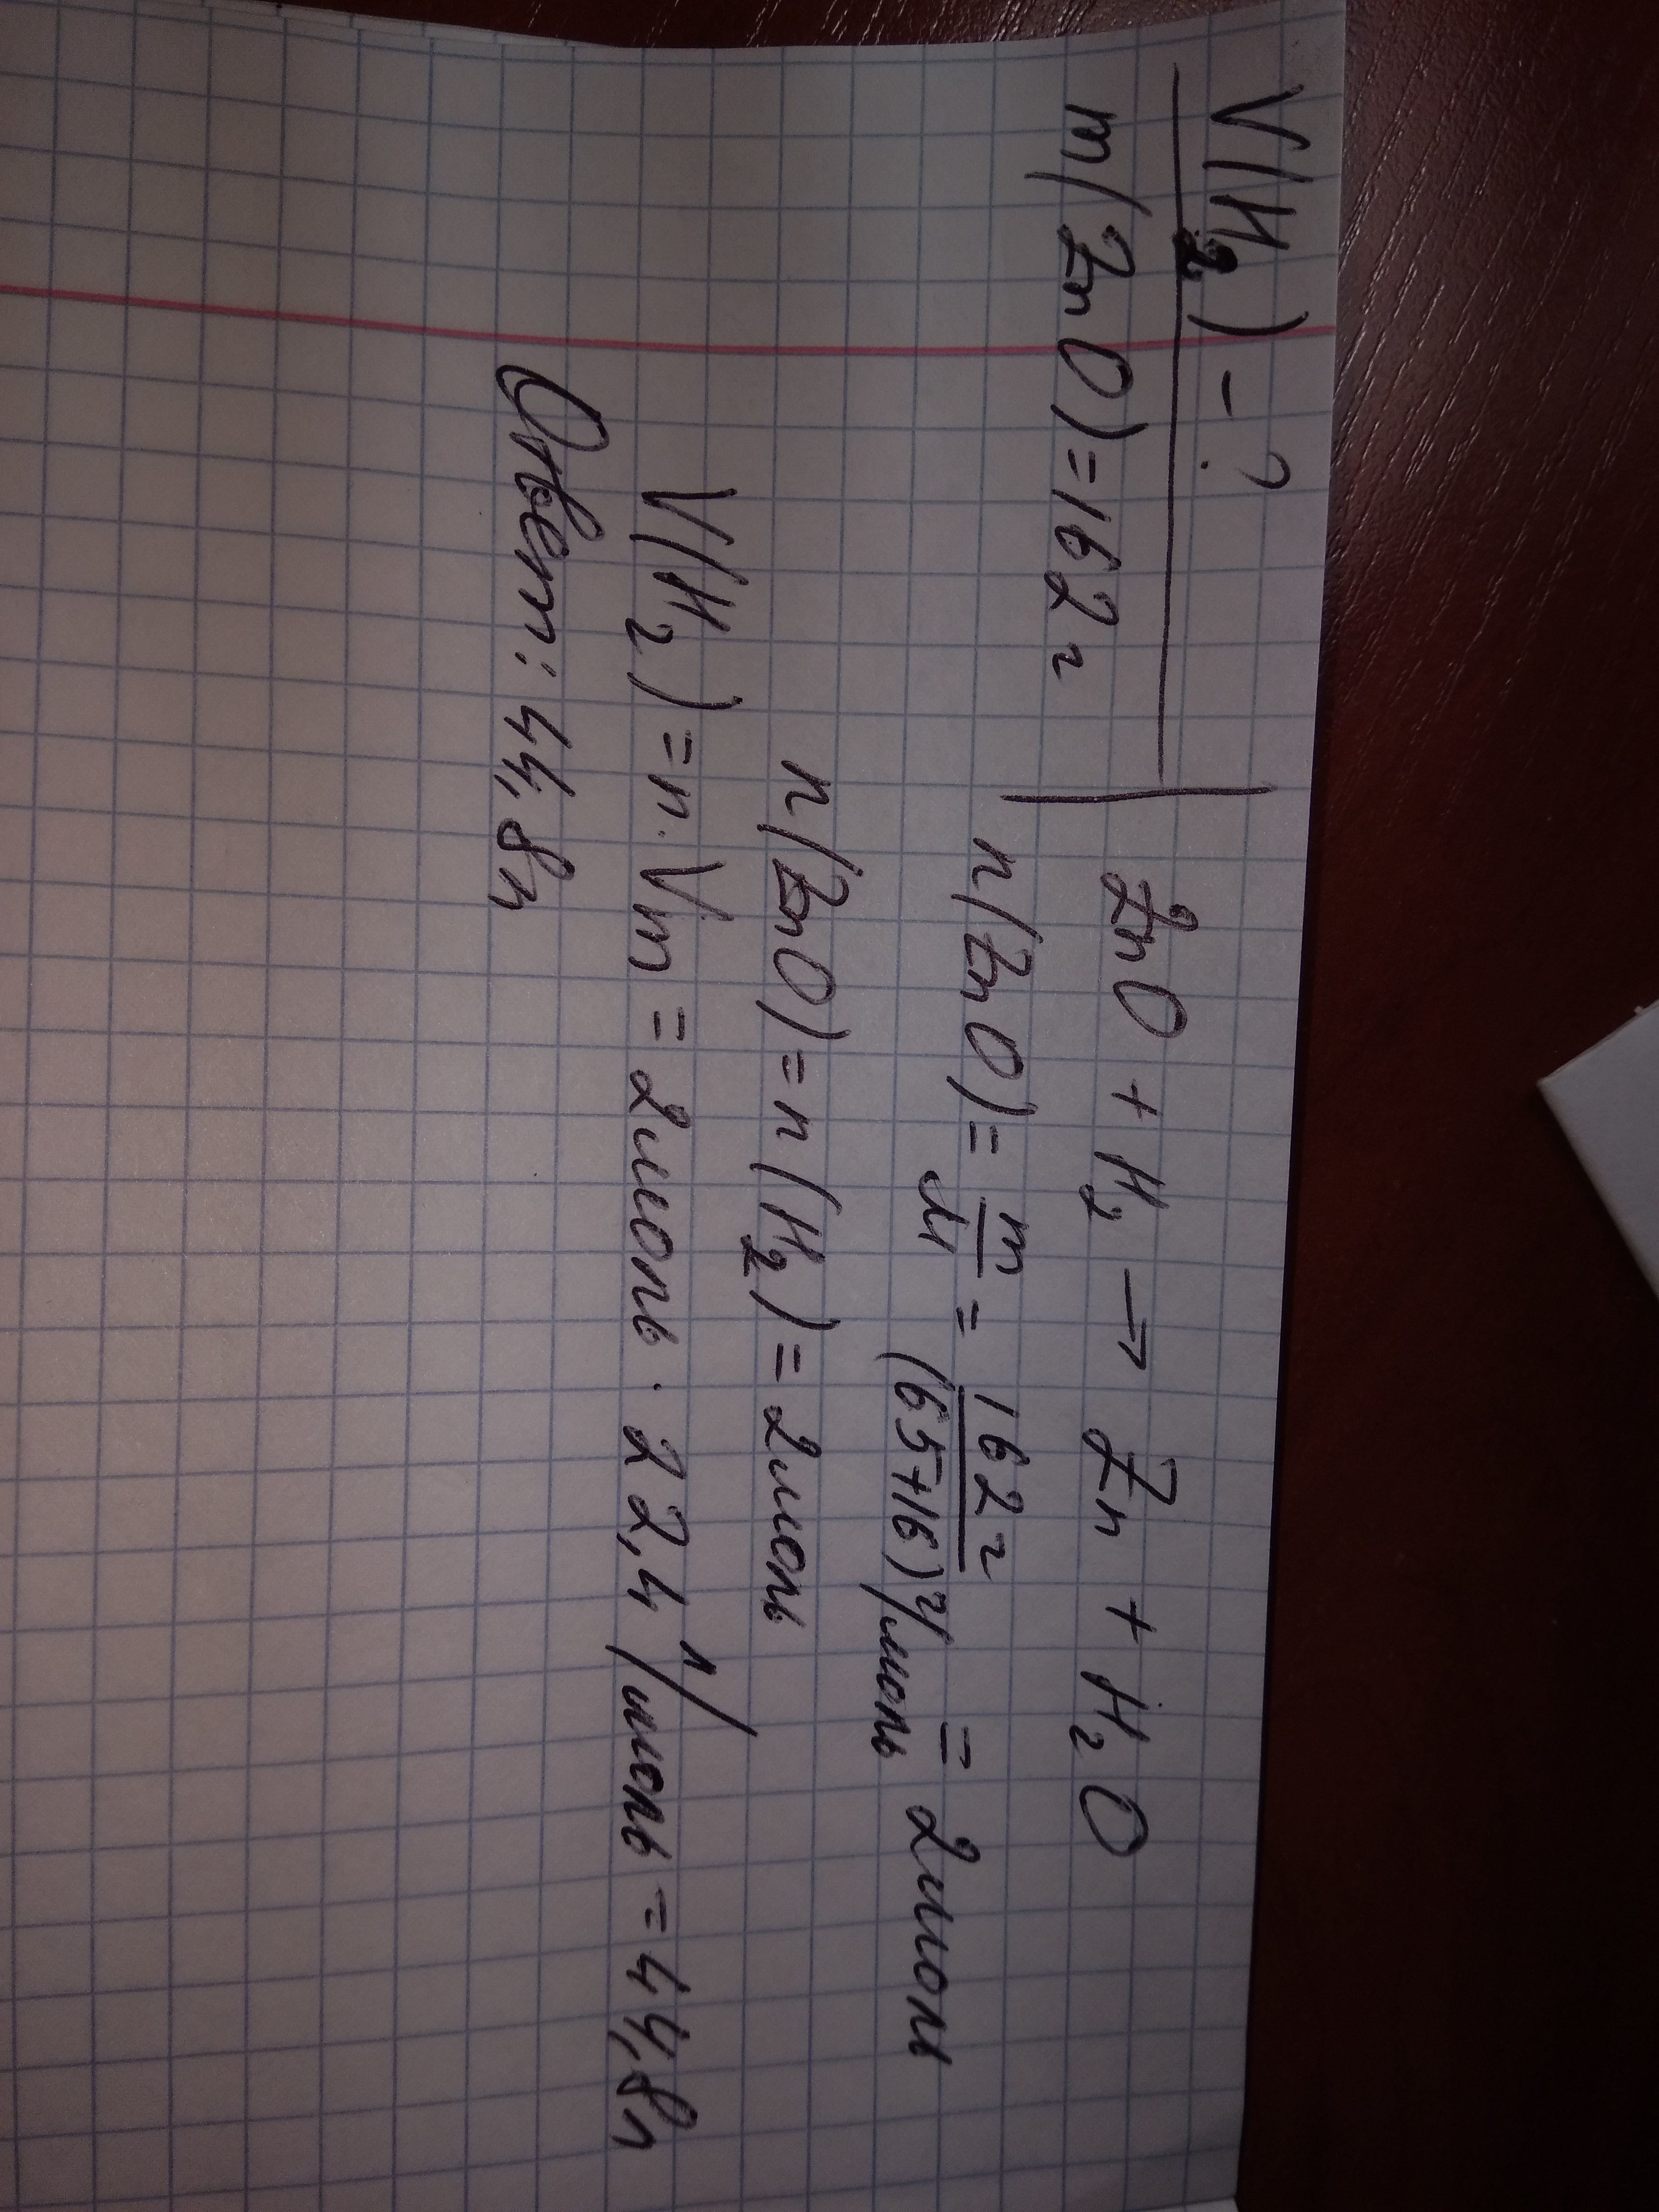 V(H₂) - ?
m(ZnO) = 162 г
ZnO + H₂ → Zn + H₂O
n(ZnO) = m/M = 162 г/(65+16) г/моль = 2 моль
n(ZnO) = n(H₂) = 2 моль
V(H₂) = n · Vm = 2 моль · 22,4 л/моль = 44,8 л
Ответ: 44,8 л